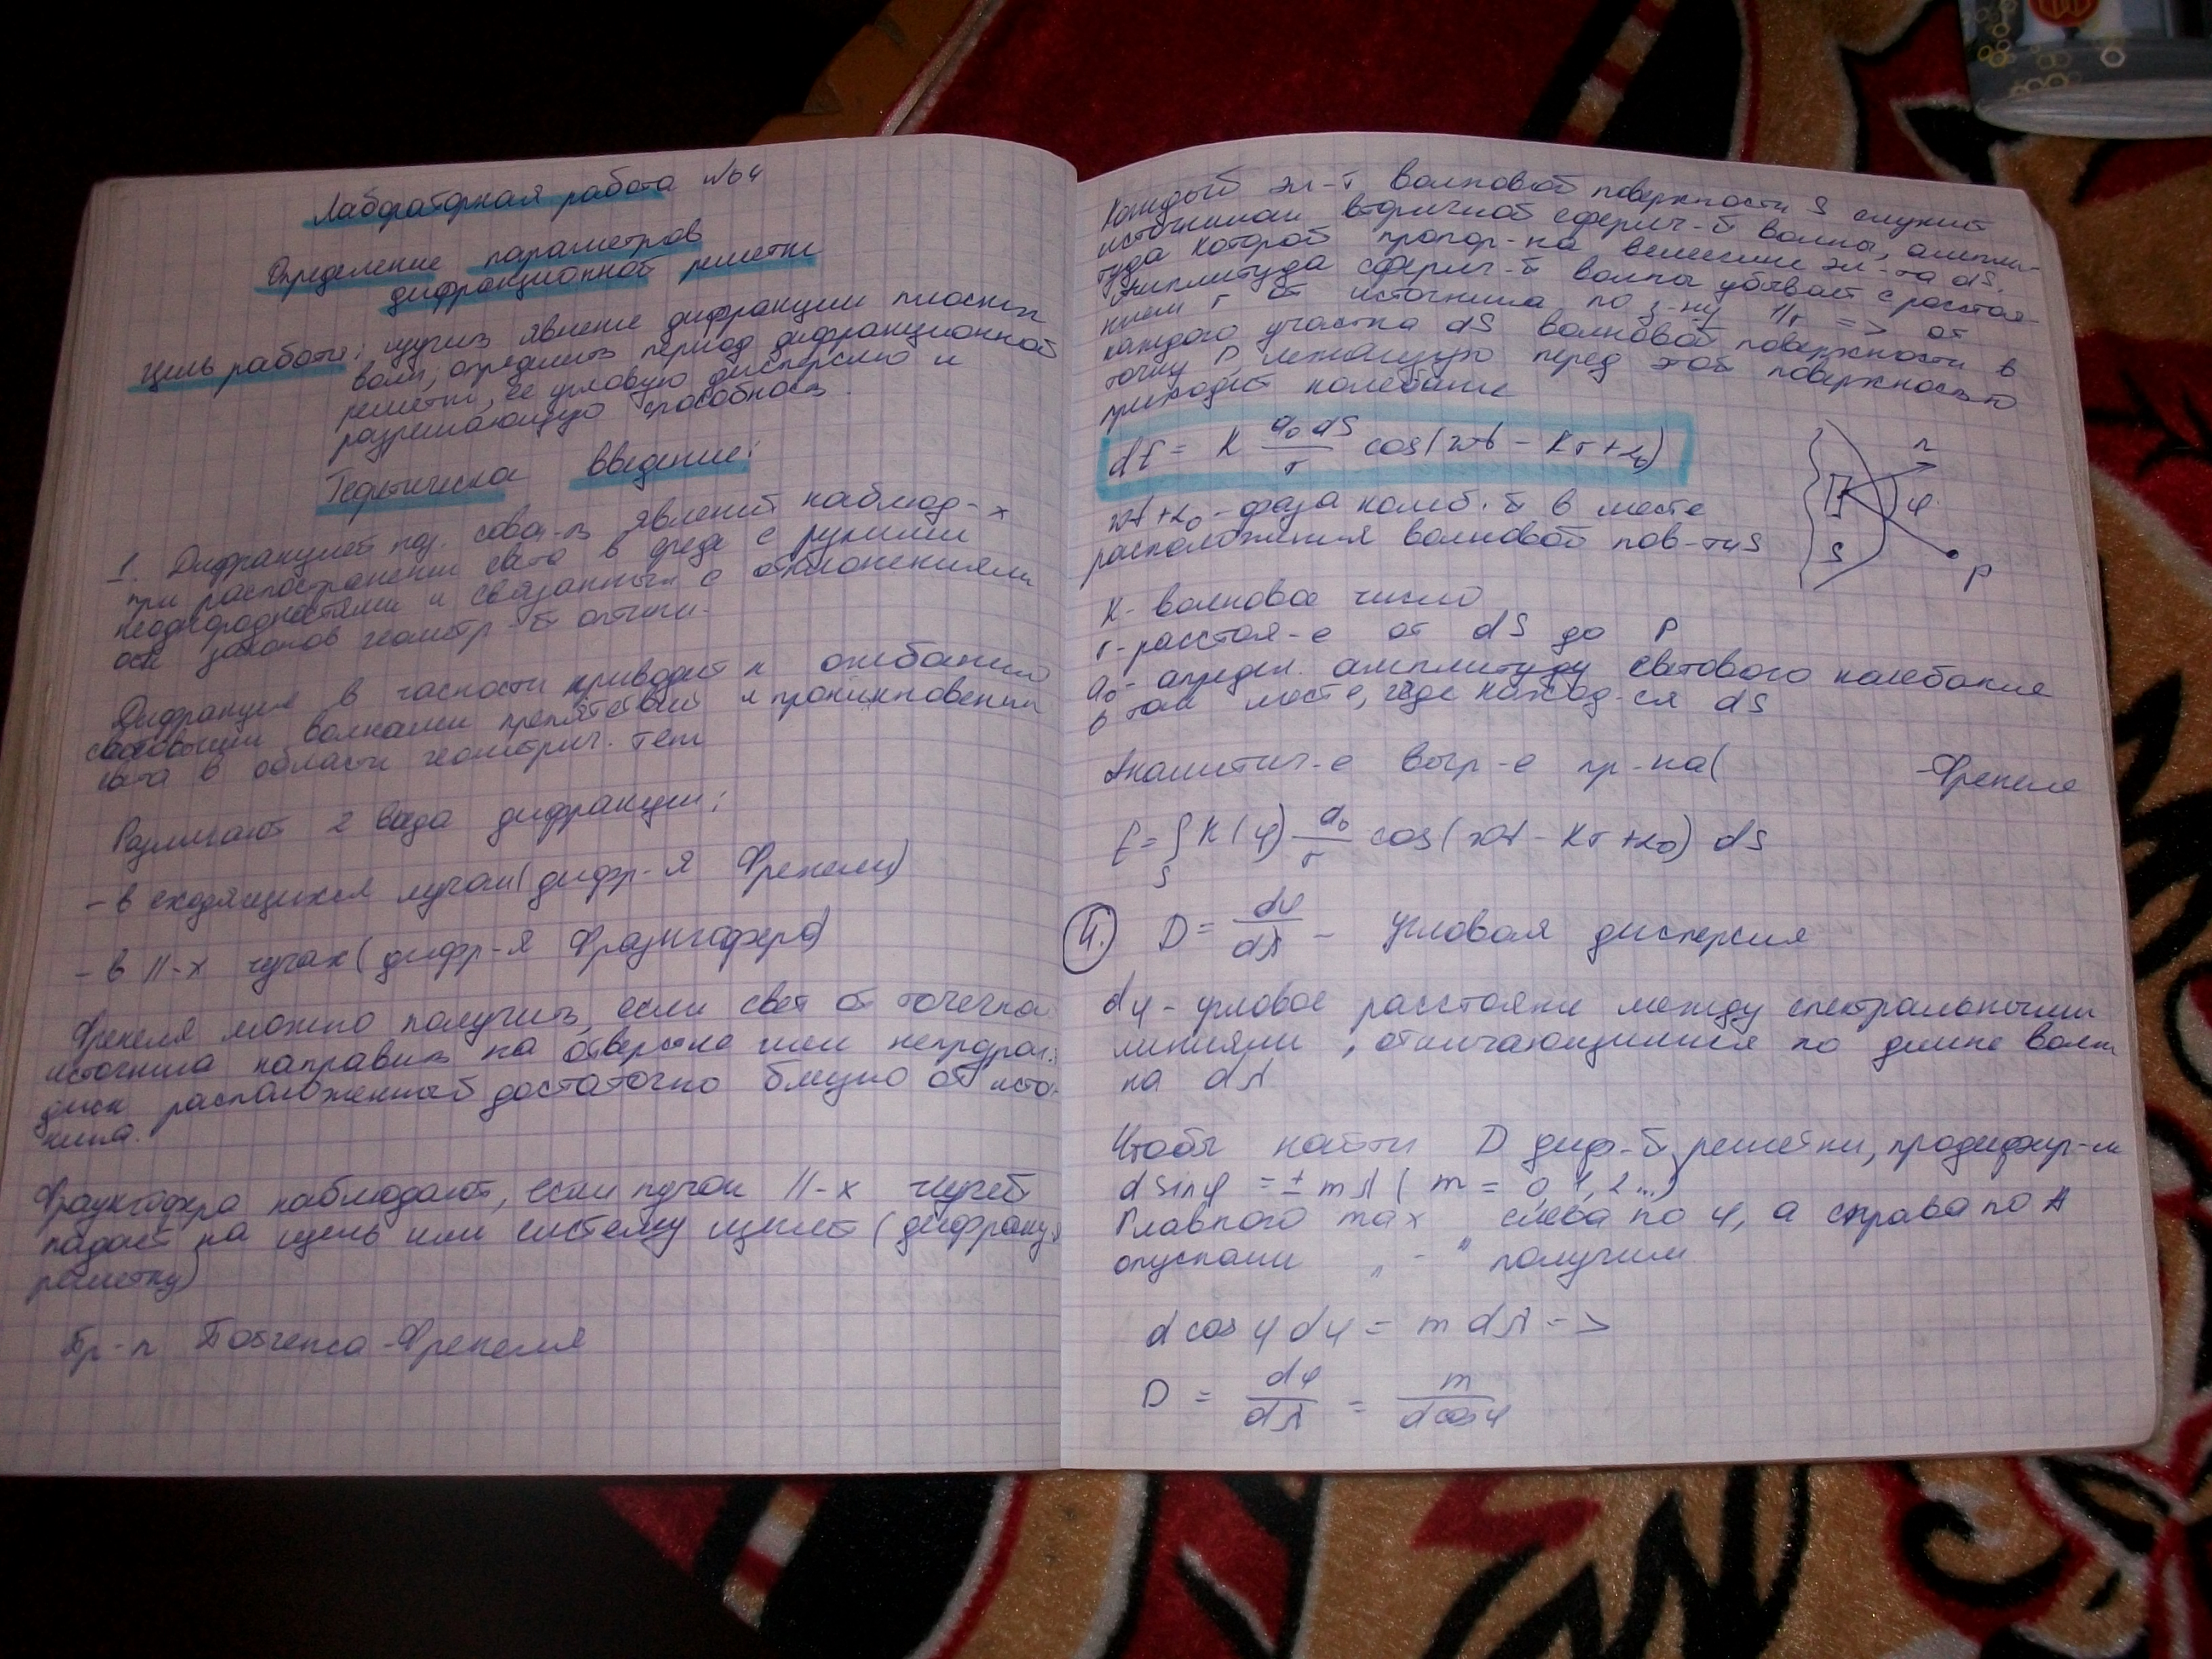 Лабораторная работа №64
Определение параметров
дифракционной решетки
Цель работы: изучить явление дифракции плоских
волн; определить период дифракционной
решетки, её угловую дисперсию и
разрешающую способность.
введение:
1. Дифракцией наз. явлений наблюд-х
при распостранении света в среде с
неоднородностями и связанных с отклонениями
законов геометр-й оптики.
Дифракция в частности приводит к огибанию
световыми волнами препятствий и проникновении
света в области геометрич. тени
Различают 2 вида дифракции:
- в сходящихся лучах (дифр-я Френеля)
- в II-х лучах (дифр-я Фраунгофера)
Френеля можно получить, если свет от точечно
источника направить на отверстие или
диск расположенный достаточно близко от исто-
чника.
Фраунгофера наблюдают, если пучок II-х лучей
падает на щель или систему щелей (дифракц.
решетку)
Пр-п Гюйгенса-Френеля
Каждый эл-т волновой поверхности S служит
источником вторичной сферич-й волны, ампли-
туда которой пропор-на величине эл-та dS.
Амплитуда сферич-й волны убывает с расстоя-
нием r от источника по з-ну 1/r => от
каждого участка dS волновой поверхности в
точку P, лежащую перед этой поверхностью
приходит колебание
dE = K a₀dS/r cos(wt - kr + α₀)
wt + α₀ - фаза колеб. в месте
расположения волновой пов-ти S
n
φ
S
P
К - волновое число
r - расстоя-е от dS до P
a₀ - определ. амплитуду светового колебания
в том месте, где наход-ся dS
Аналитич-е выр-е пр-па (
Френеля
E = ∫ K(φ) a₀/r cos(wt - kr + α₀) dS
S
4. D = dφ/dλ - угловая дисперсия
dφ - угловое расстояни между спектральными
линиями, отличающимися по длине волн
на dλ
Чтобы найти D диф-й решетки, продифир-м
d sinφ = ± mλ ( m = 0, 1, 2 ...)
Главного max слева по φ, а справа по λ
опуская „ - “ получим
d cos φ dφ = m dλ =>
D = dφ/dλ = m/d cosφ